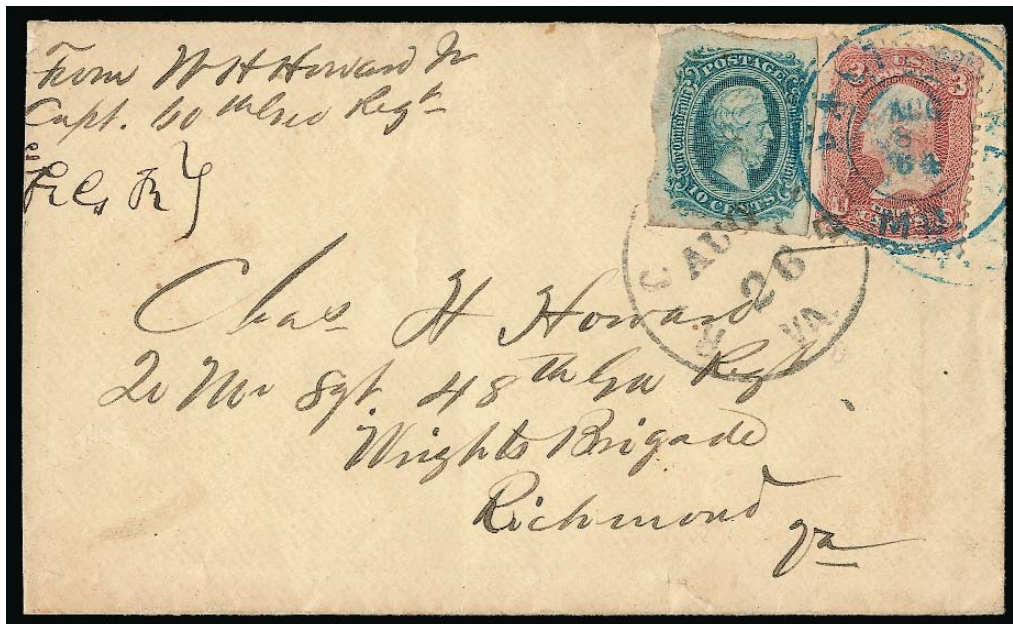 From W H Howard Jr
Capt. 60th Geo Regt
POSTAGE
The Confederate
10 CENTS
U.S.
3 3
AUG
8
'64
MD.
AUG
26
VA.
Chas H Howard
Qr Mr Sgt. 48th Ga Regt
Wrights Brigade
Richmond
Va